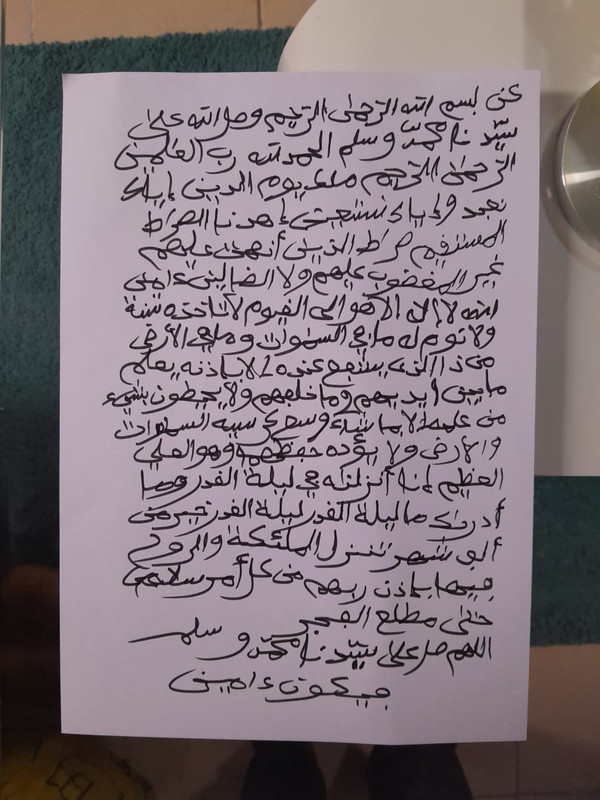 عن بسم الله الرحمن الرحيم وصل الله على
سيّدنا محمّد وسلم الحمد لله رب العلمين
الرحمن الرحيم ملك يوم الدين إياك
نعبد وإياك نستعين إهدنا الصراط
المستقيم صراط الذين أنهمت عليهم
غير المغضوب عليهم ولا الضالين ءامين
الله لا إله الا هو الحي القيوم لا تاخذه سنة
ولا نوم له ما في السموات وما في الأرض
من ذا الذي يشفع عنده إلا باذنه يعلم
ما بين أيديهم وما خلفهم ولا يحطون بشيء
من علمه إلا بما شاء وسع كرسيه السموات
والأرض ولا يؤده حفظهما وهو العلي
العظيم إنا أنزلنه في ليلة القدر وما
أدرىك ما ليلة القدر ليلة القدر خير من
ألف شهر تنزل الملئكة والروح
فيها بإذن ربهم من كل أمر سلام هي
حتى مطلع الفجر
اللهم صل على سيّدنا محمّد وسلم
فيكون ءامين